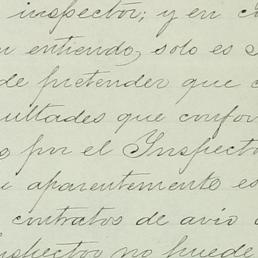 inspector; y en c
n entiendo, solo es S
de pretender que
ultades que confor
o por el Inspecto
aparentemente es
contratos de avío
Inspector no puede